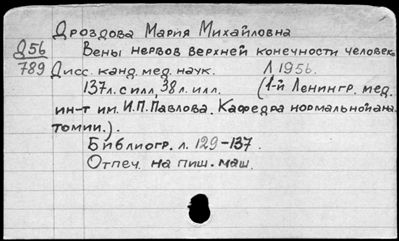 Дроздова Мария Михайловна
Д56 Вены нервов верхней конечности человека
789 Дисс. канд. мед. наук. Л 1956.
137л. с илл, 38л. илл. (1-й Ленингр. мед.
ин-т им. И.П.Павлова. Кафедра нормальной ана
томии.).
Библиогр. л. 129-137.
Отпеч. на пиш. маш.